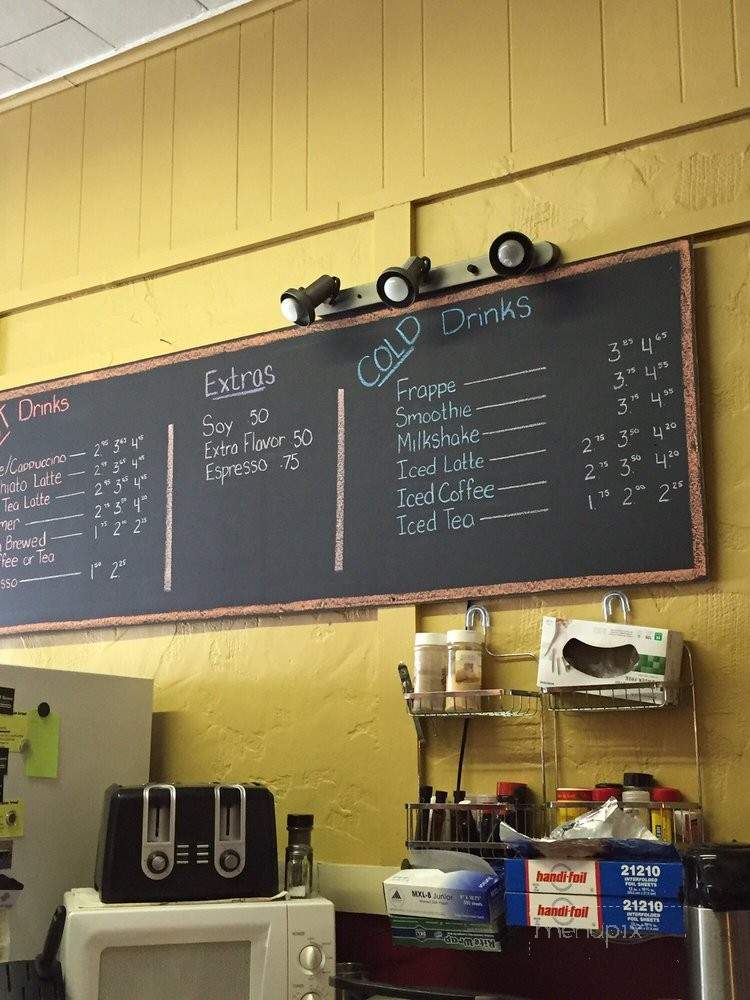 Drinks
e/Cappuccino 2.95 3.65 4.45
hiato Latte 2.95 3.65 4.45
Tea Latte 2.95 3.65 4.45
mer 2.75 3.50 4.20
Brewed 1.75 2.00 2.25
ffee or Tea
sso 1.50 2.25
Extras
Soy .50
Extra Flavor .50
Espresso .75
COLD Drinks
Frappe 3.85 4.65
Smoothie 3.75 4.55
Milkshake 3.75 4.55
Iced Latte 2.75 3.50 4.20
Iced Coffee 2.75 3.50 4.20
Iced Tea 1.75 2.00 2.25
MXL-8 Junior
handi-foil
21210
INTERFOLDED
FOIL SHEETS
handi-foil
21210
INTERFOLDED
FOIL SHEETS
menupix